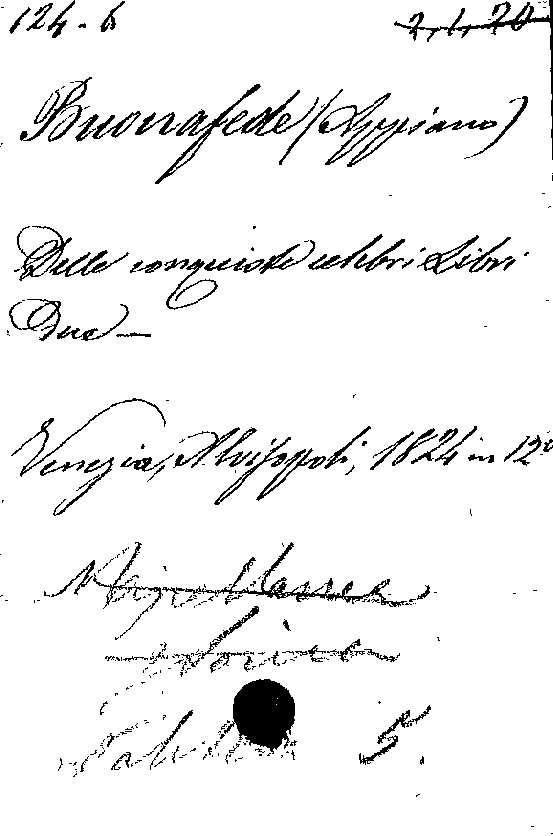 124-6 2,1,20
Buonafede (Appiano)
Delle conquiste celebri Libri
Due —
Venezia, Alvisopoli, 1824 in 12º
5.